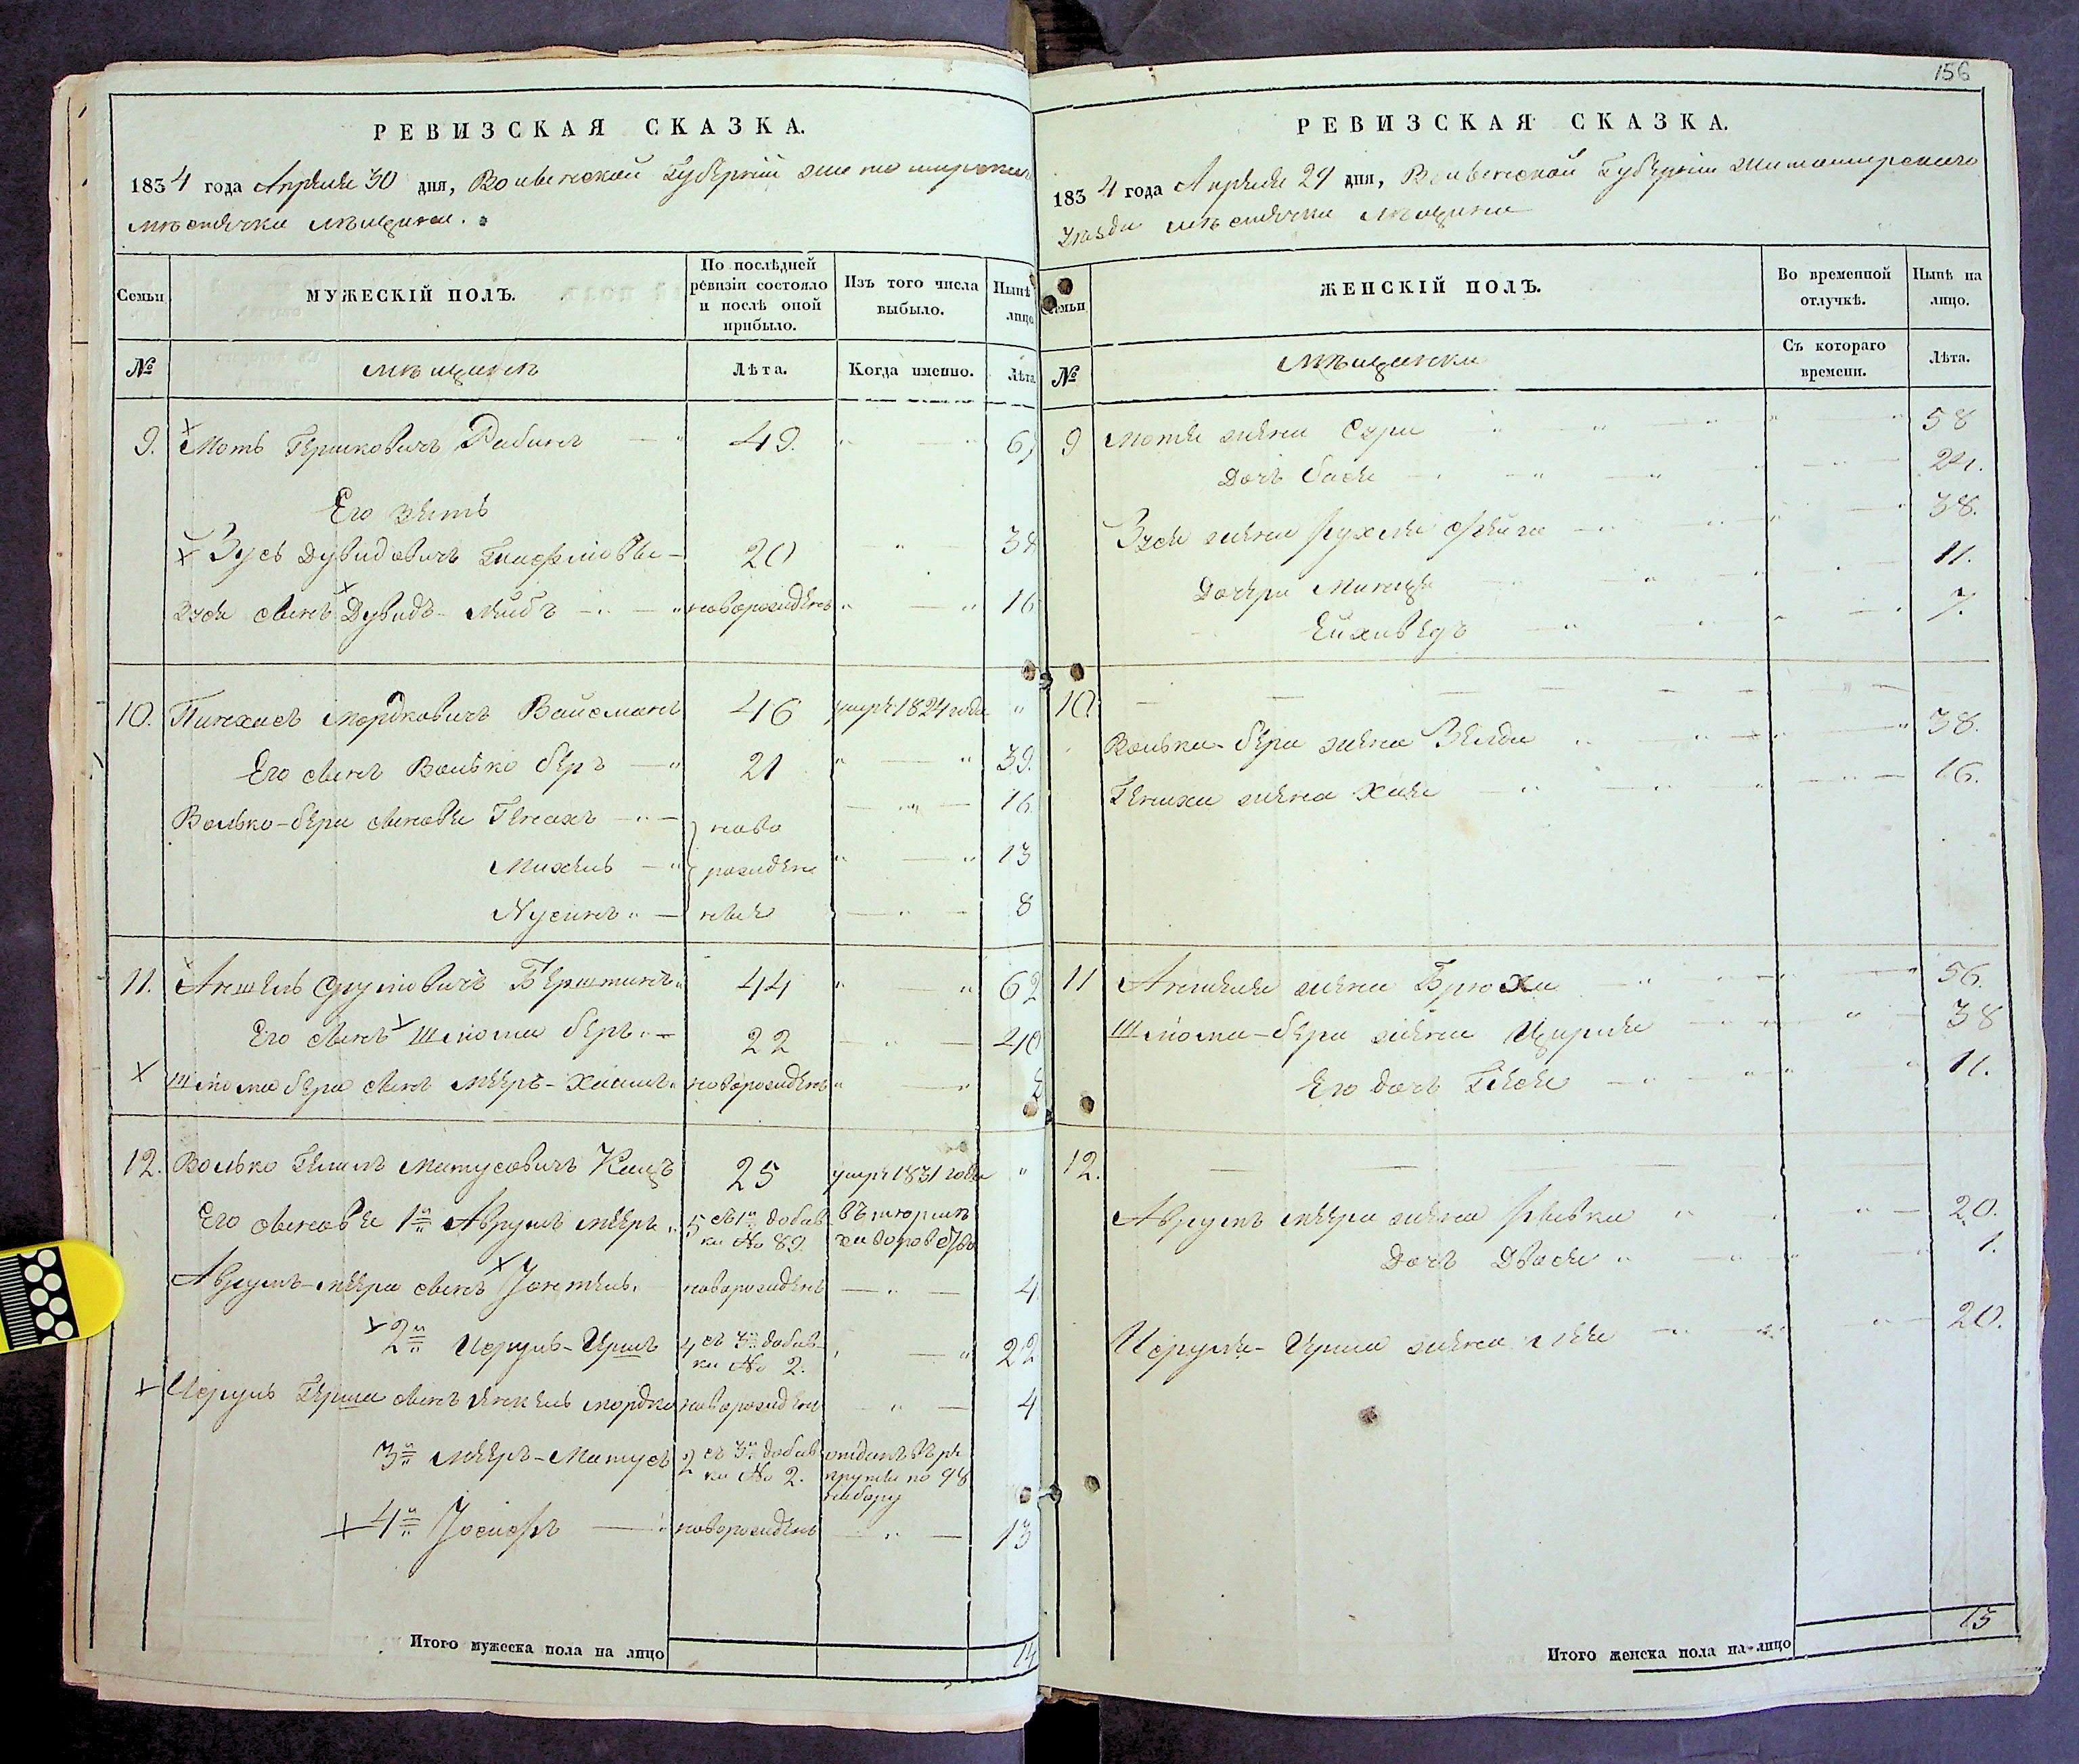 РЕВИЗСКАЯ СКАЗКА.
1834 года Апреля 30 дня, Волынской Губерніи
мѣстечка
Семьи
МУЖЕСКІЙ ПОЛЪ.
По послѣдней ревизіи состояло и послѣ оной прибыло.
Изъ того числа выбыло.
Нынѣ лицо
№
мѣщанъ
Лѣта.
Когда именно.
Лѣта
9. Моть Гершковичъ Рабинъ 49.
Его зять
Зусь Дувидовичъ 20 38
Зуси сынъ Дувидъ-Лейбъ новорожденъ 16
10. Пинхасъ Мордковичъ Вайсманъ 46 умре 1824 года
Его сынъ Волько беръ 21 39.
Волько-бера сыновья Генахъ ново 16
Михель рожден 13
Нусинъ ные 8
11. Аншель Сруліовичъ Берштинъ 44 62
Его сынъ Шліома беръ 22 40
Шліома бера сынъ Меэръ-Хаимъ новорожденъ
12. Волько Гецель Матусовичъ Кацъ 25 умре 1831 года
Его сыновья 1й Аврумъ Меэръ 5 съ 1й добавки № 89.
Аврумъ-Меэра сынъ новорожденъ 4
2й Исруль-Гершъ 4 съ 3й добавки № 2. 22
Исруль Герша сынъ Янкель Мордко новорожден 4
3й Меэръ-Матусъ 2 съ 3й добавки № 2. отданъ въ рекруты по 98 набору
4й Іосифъ новорожденъ 13
Итого мужеска пола на лицо 14
156
РЕВИЗСКАЯ СКАЗКА.
1834 года Апреля 29 дня, Волынской Губерніи Житомирскаго
уѣзда мѣстечка
Семьи
ЖЕНСКІЙ ПОЛЪ.
Во временной отлучкѣ.
Нынѣ на лицо.
№
мѣщанки
Съ котораго времени.
Лѣта.
9 Мотя жена Сура 58
Дочь бася 24.
Зуси жена Рухля Фейга 38.
Дочери Минця 11.
7.
10
Волька-бера жена Зельда 38.
Генаха жена Хая 16.
11 Аншеля жена Брюха 56.
Шліома-бера жена Цирля 38
Его дочь Геся 11.
12.
Аврумъ Меэра жена Рывка 20.
Дочь Двося 1.
Исруля-Герша жена Лея 20.
Итого женска пола на-лицо 15